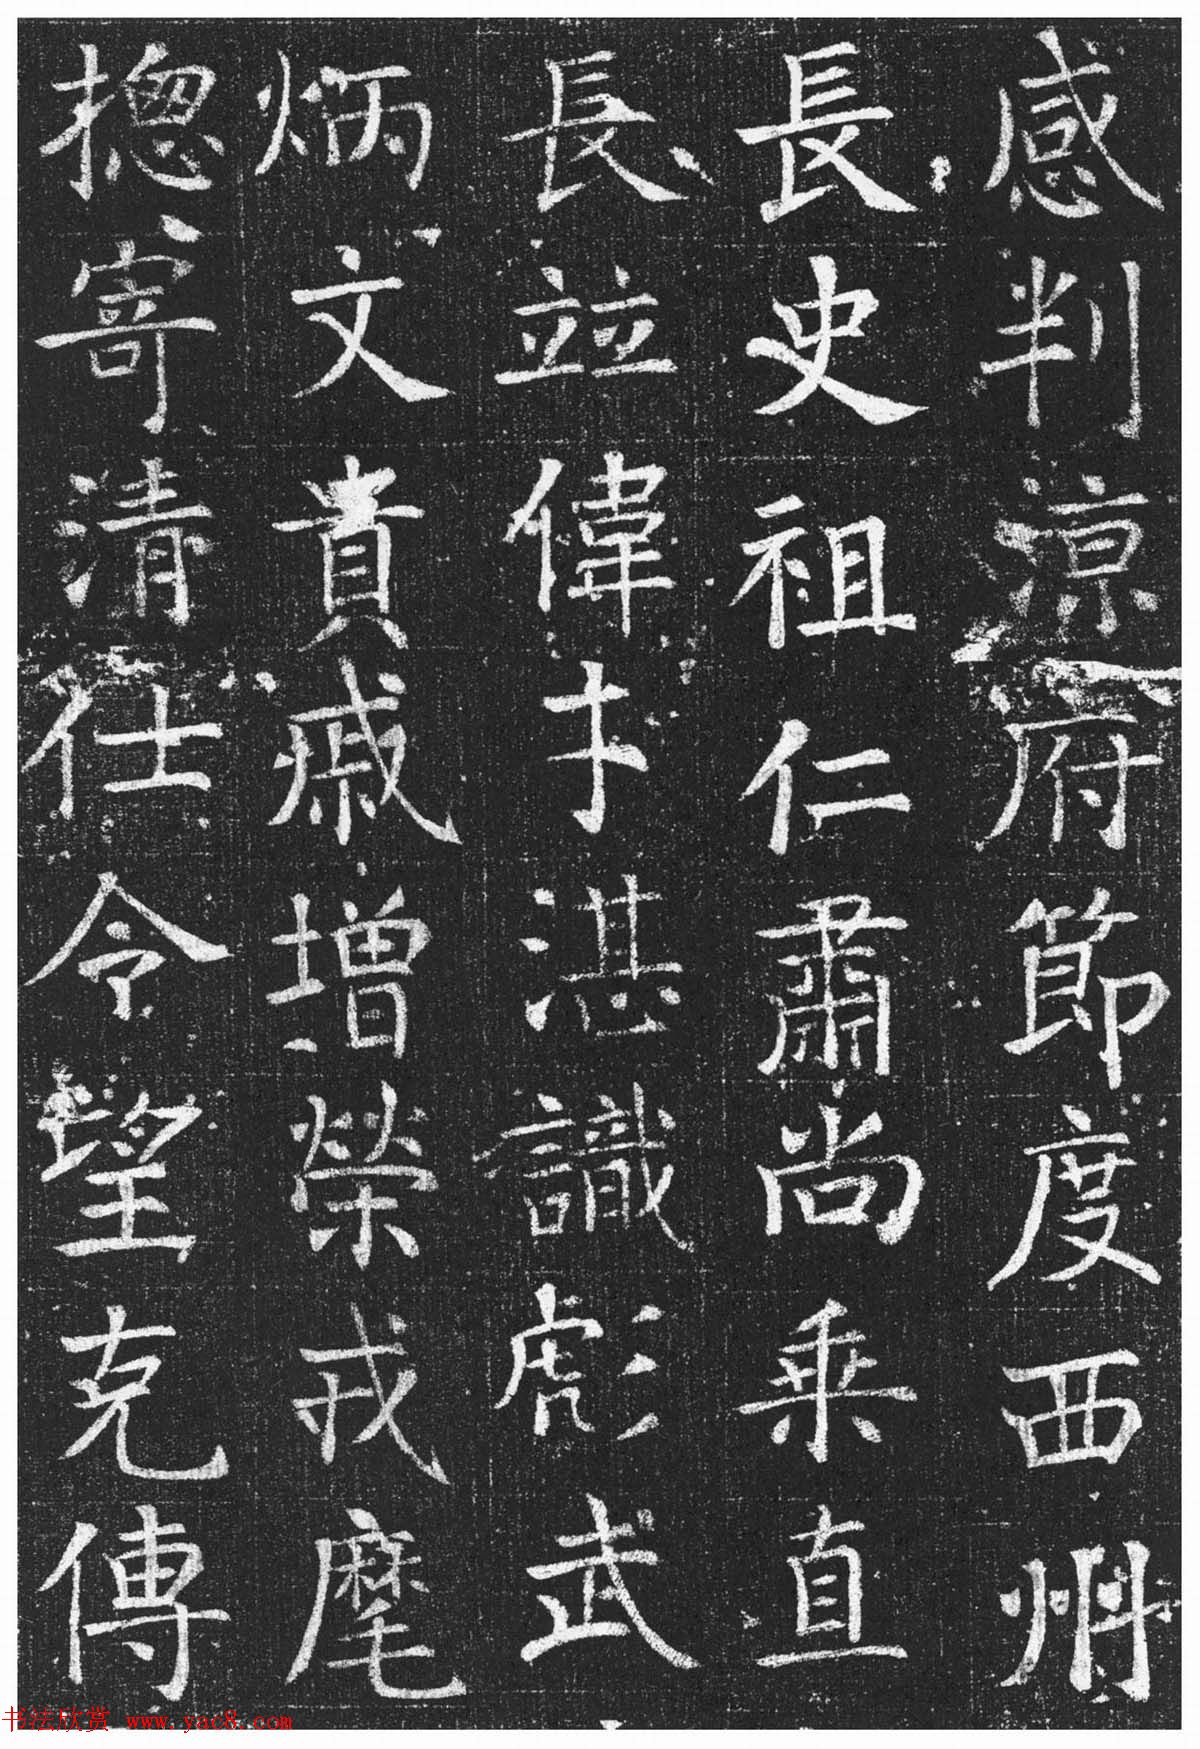 感判涼府節度西州
長史祖仁肅尚乗直
長並偉才湛識彪武
炳文貴戚增榮戎麾
揔寄清任令望克傳
书法欣赏 www.yac8.com